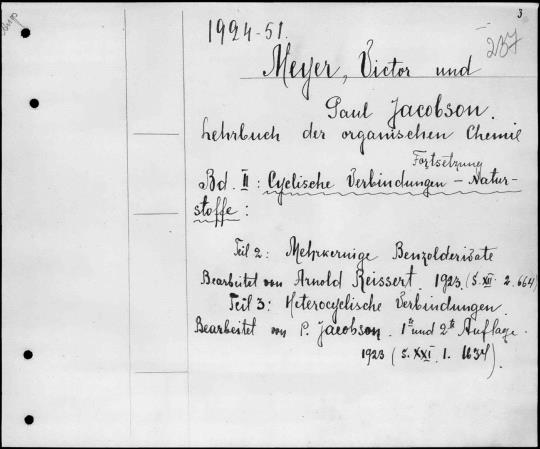 3
1924-51.
237
Meyer, Victor und
Paul Jacobson.
Lehrbuch der organischen Chemie
Fortsetzung
Bd. II : Cyclische Verbindungen – Natur-
stoffe :
Teil 2 : Mehrkernige Benzolderivate
Bearbeitet von Arnold Reissert. 1923 (S. XII. 2. 664)
Teil 3 : Heterocyclische Verbindungen.
Bearbeitet von P. Jacobson. 1te und 2te Auflage.
1923 (S. XXI. 1. 1634).